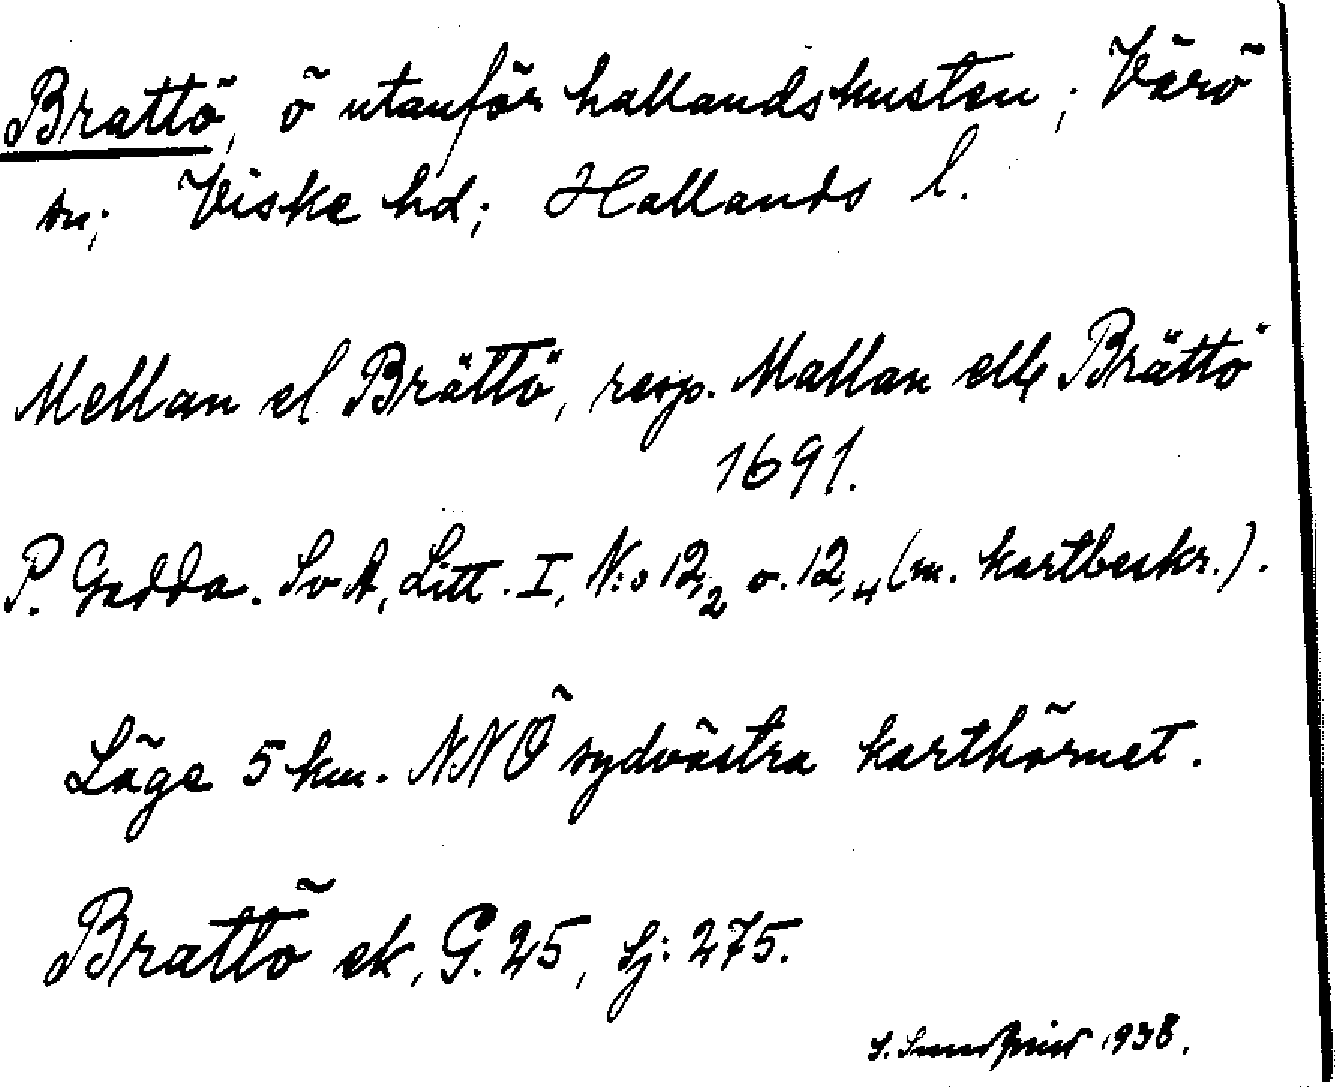 Brattö, ö utanför hallandskusten; Värö
sn; Viske hd; Hallands l.
Mellan el Brättö, resp. Mallan ell Brättö
1691.
P. Gedda. SvA, Litt. I, N:o 12,2 o. 12,4 (m. kartbeskr.).
Läge 5 km. NNÖ sydvästra karthörnet.
Brattö ek, G. 25, Sj: 275.
1938.